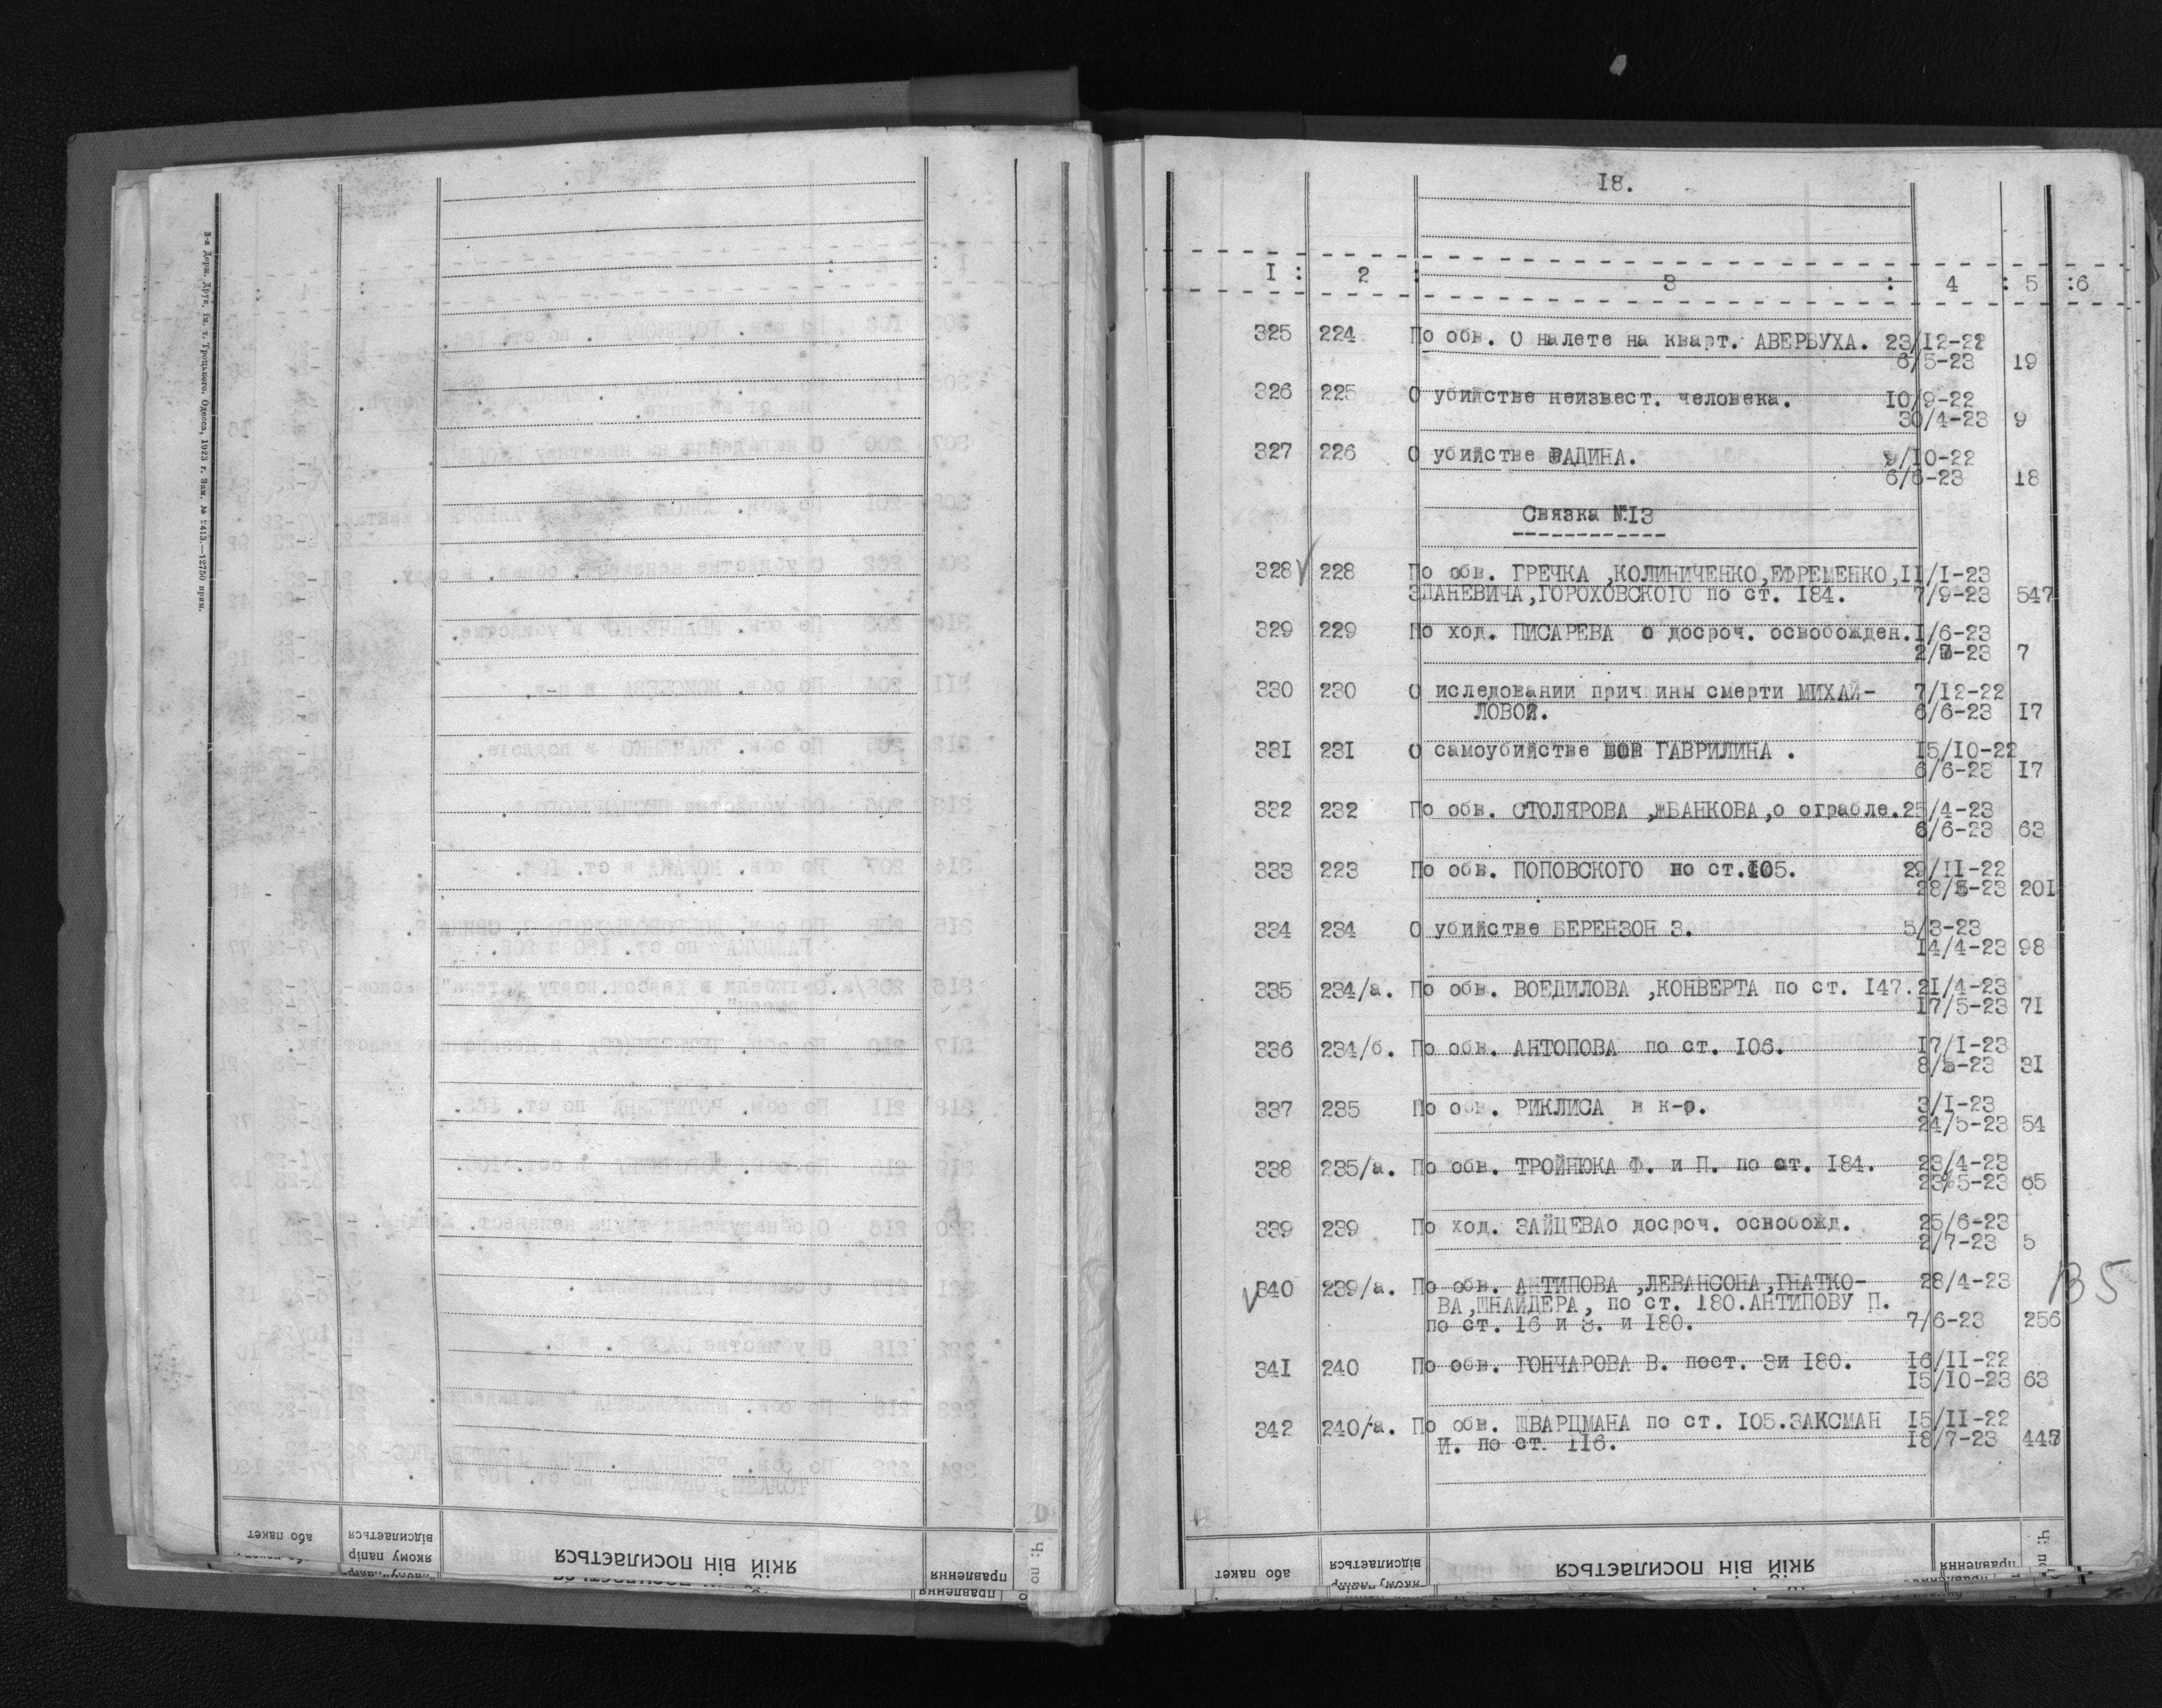 3-я Держ. Друк. ім. т. Троцького. Одесса, 1923 г. Зам. № 2413.—12750 прим.
або пакет
якому папір відсилається
якій він посилається
правлення
18.
1 : 2 : 3 : 4 : 5 : 6
325 224 По обв. О налете на кварт. АВЕРБУХА. 23/12-22
6/5-23 19
326 225 О убийстве неизвест. человека. 10/9-22
30/4-23 9
327 226 О убийстве ВАДИНА. 9/10-22
6/6-23 18
Связка №13
328 228 По обв. ГРЕЧКА ,КОЛИНИЧЕНКО,ЕФРЕМЕНКО, 11/1-23
ЗДАНЕВИЧА,ГОРОХОВСКОГО по ст. 184. 7/9-23 547
329 229 По ход. ПИСАРЕВА о досроч. освобожден. 1/6-23
2/7-23 7
330 230 О иследовании причины смерти МИХАЙ- 7/12-22
ЛОВОЙ. 6/6-23 17
331 231 О самоубийстве ГАВРИЛИНА . 15/10-22
6/6-23 17
332 232 По обв. СТОЛЯРОВА ,ЖБАНКОВА,о ограбле. 25/4-23
6/6-23 63
333 223 По обв. ПОПОВСКОГО по ст.105. 29/11-22
28/5-23 201
334 234 О убийстве БЕРЕНЗОН З. 5/3-23
14/4-23 98
335 234/а. По обв. ВОЕДИЛОВА ,КОНВЕРТА по ст. 147. 21/4-23
17/5-23 71
336 234/б. По обв. АНТОПОВА по ст. 106. 17/1-23
8/5-23 31
337 235 По обв. РИКЛИСА в к-р. 3/1-23
24/5-23 54
338 235/а. По обв. ТРОЙНЮКА Ф. и П. по ст. 184. 23/4-23
23%5-23 65
339 239 По ход. ЗАЙЦЕВАо досроч. освобожд. 25/6-23
2/7-23 5
340 239/а. По обв. АНТИПОВА ,ЛЕВАНСОНА,ГНАТКО- 28/4-23 135
ВА,ШНАЙДЕРА, по ст. 180.АНТИПОВУ П.
по ст. 16 и 3. и 180. 7/6-23 256
341 240 По обв. ГОНЧАРОВА В. пост. 3и 180. 16/11-22
15/10-23 63
342 240/а. По обв. ШВАРЦМАНА по ст. 105.ЗАКСМАН 15/11-22
И. по ст. 116. 18/7-23 447
або пакет
якому папір відсилається
якій він посилається
правлення